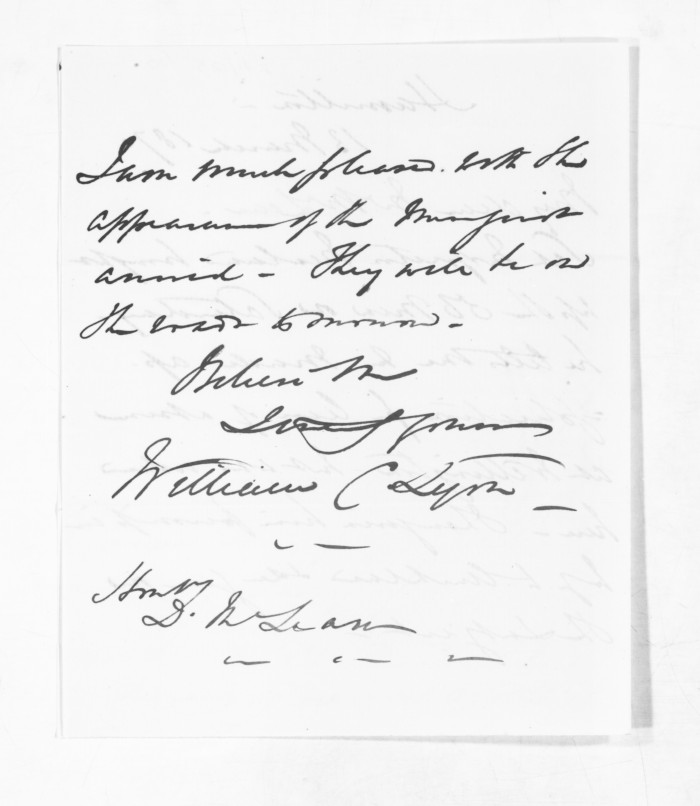 I am much pleased with the
appearance of the men just
arrived - They will be on
the road tomorrow -
Believe Me
Yours
William C Lyon -
Honble
D. McLean